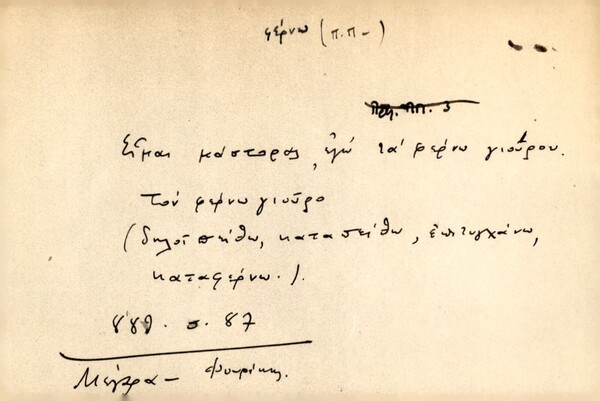 φέρνω (Π.Π-)
Εἶμαι μάστορας, ἐγώ τά φέρνω γιοῦρου.
Τόν φέρνω γιοῦρο
(δηλοῖ πείθω, καταπείθω, ἐπιτυγχάνω,
καταφέρνω.).
889. σ. 87
Μέγαρα - Φουρίκης.